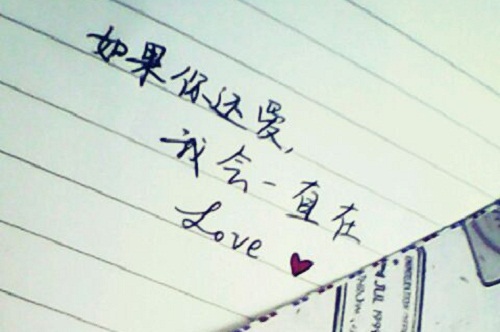 如果你还爱,
我会一直在
Love